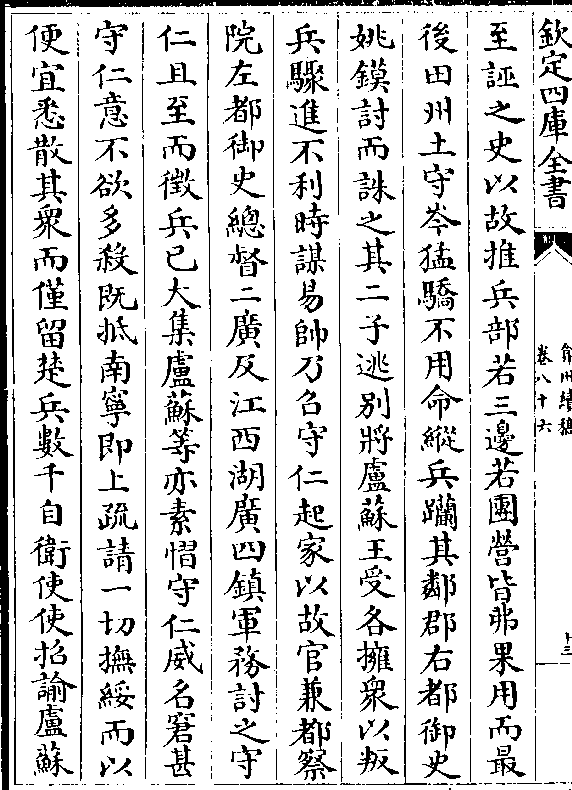 欽定四庫全書
弇州續稿
卷八十六
十三
至誣之史以故推兵部若三邊若團營皆弗果用而最
後田州土守岑猛驕不用命縱兵躪其鄰郡右都御史
姚鏌討而誅之其二子逃别將盧蘇王受各擁衆以叛
兵驟進不利時謀易帥乃召守仁起家以故官兼都察
院左都御史總督二廣及江西湖廣四鎮軍務討之守
仁且至而徵兵已大集盧蘇等亦素慴守仁威名窘甚
守仁意不欲多殺既抵南寧即上疏請一切撫綏而以
便宜悉散其衆而僅留楚兵數千自衛使使招諭盧蘇